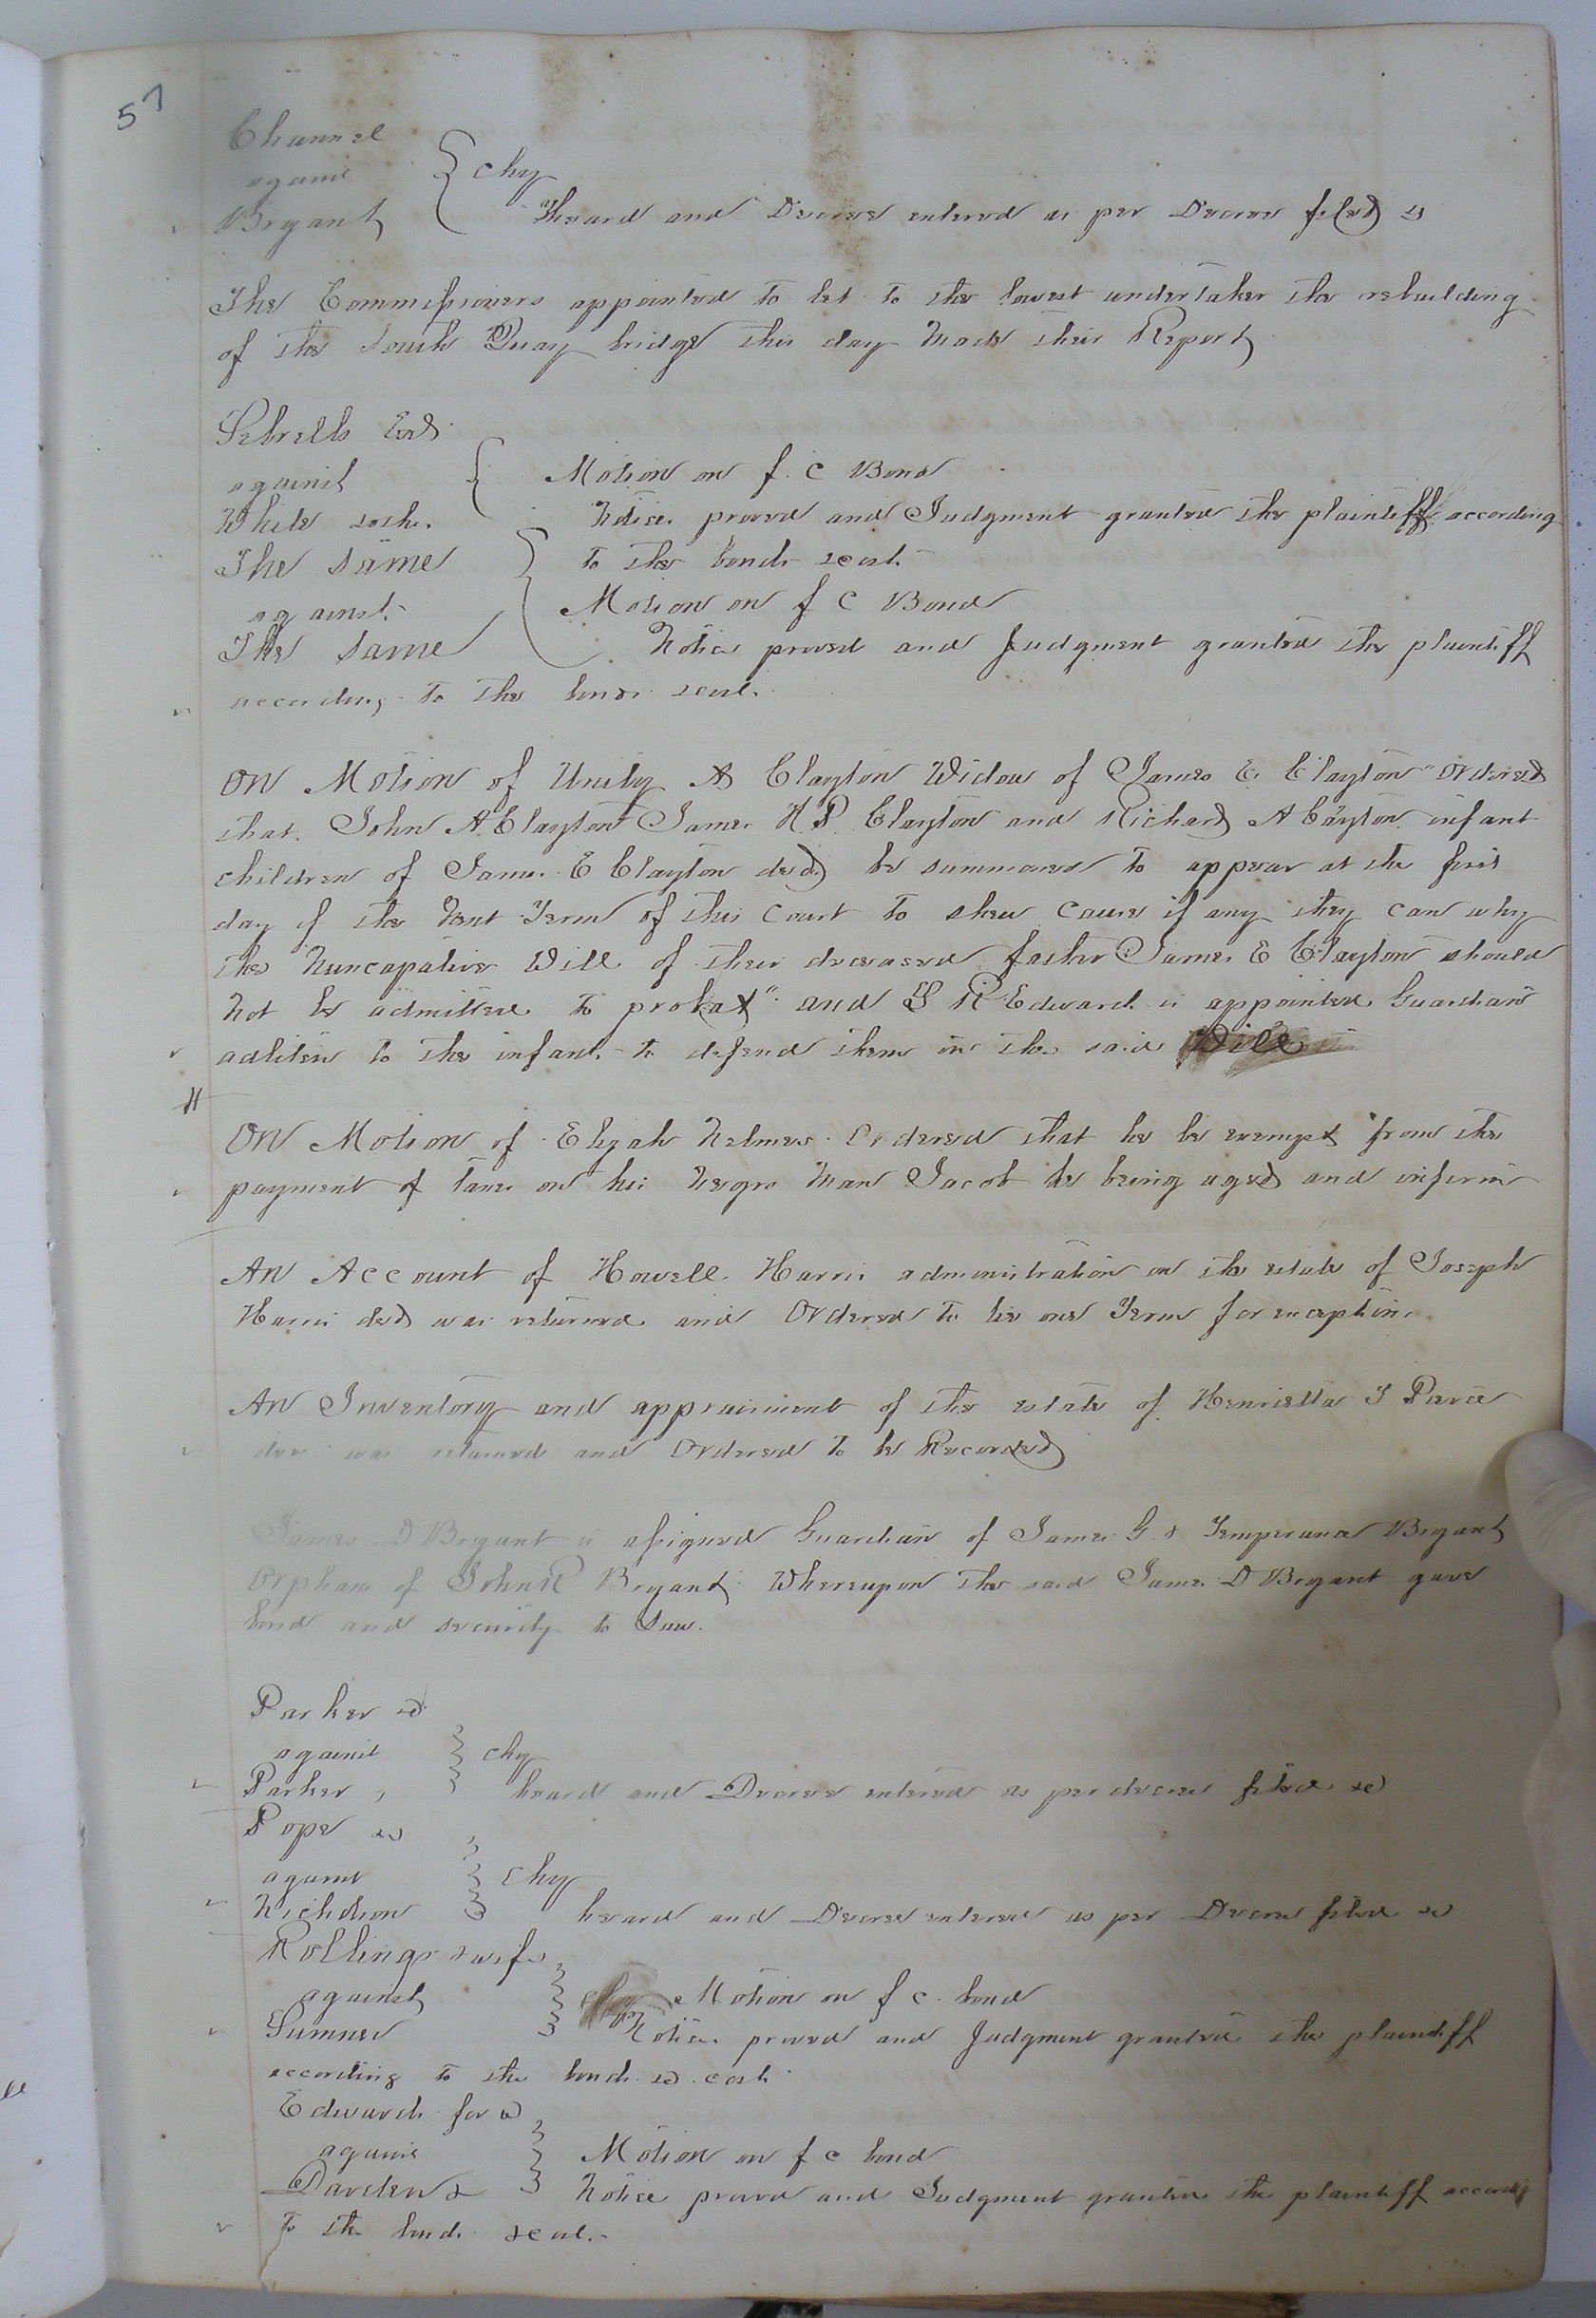 57
Channel
against
Bryant
chy
Heard and Decree entered as per Decree filed &
The Commissioners appointed to let to the lowest undertaker the rebuilding
of the South Quay bridge this day made their Report
Sebrells
against
White
Motion on f. c Bond
Notice proved and Judgment granted the plaintiff according
to the bond & cost
The same
against
The same
Motion on f c Bond
Notice proved and Judgment granted the plaintiff
according to the bond & cost.
On Motion of Unity A Clayton Widow of James E. Clayton Ordered
that John A. Clayton James H P. Clayton and Richard A Clayton infant
children of James E Clayton decd be summoned to appear at the first
day of the Next Term of this Court to shew cause if any they can why
the Nuncapative Will of their deceased father James E Clayton should
not be admitted to probat" and R Edwards is appointed Guardian
adlitem to the infants to defend them in the said Will
On Motion of Elijah Helmes Ordered that he be exempt from the
payment of taxes on his Negro Man Jacob he being aged and infirm
An Account of Howell Harris administration on the estate of Joseph
Harris decd was returned and Ordered to lie one Term for exceptions
An Inventory and appraisment of the estate of Henrietta Pearce
dec was returned and Ordered to be Recorded
James D Bryant is assigned Guardian of James G. & Temperance Bryant
Orphans of John R Bryant Whereupon the said James D Bryant gave
bond and security to Law.
Parker &
against
Parker
chy
heard and Decree entered as per decree filed &c
Pope &
against
Nicholson
chy
heard and Decree entered as per Decree filed &
Rollings & wife
against
Sumner
Motion on f c. bond
Notice proved and Judgment granted the plaintiff
according to the bond & cost
Edwards for &
against
Darden &
Motion on f c bond
Notice proved and Judgment granted the plaintiff accordg
to the bond & cost.